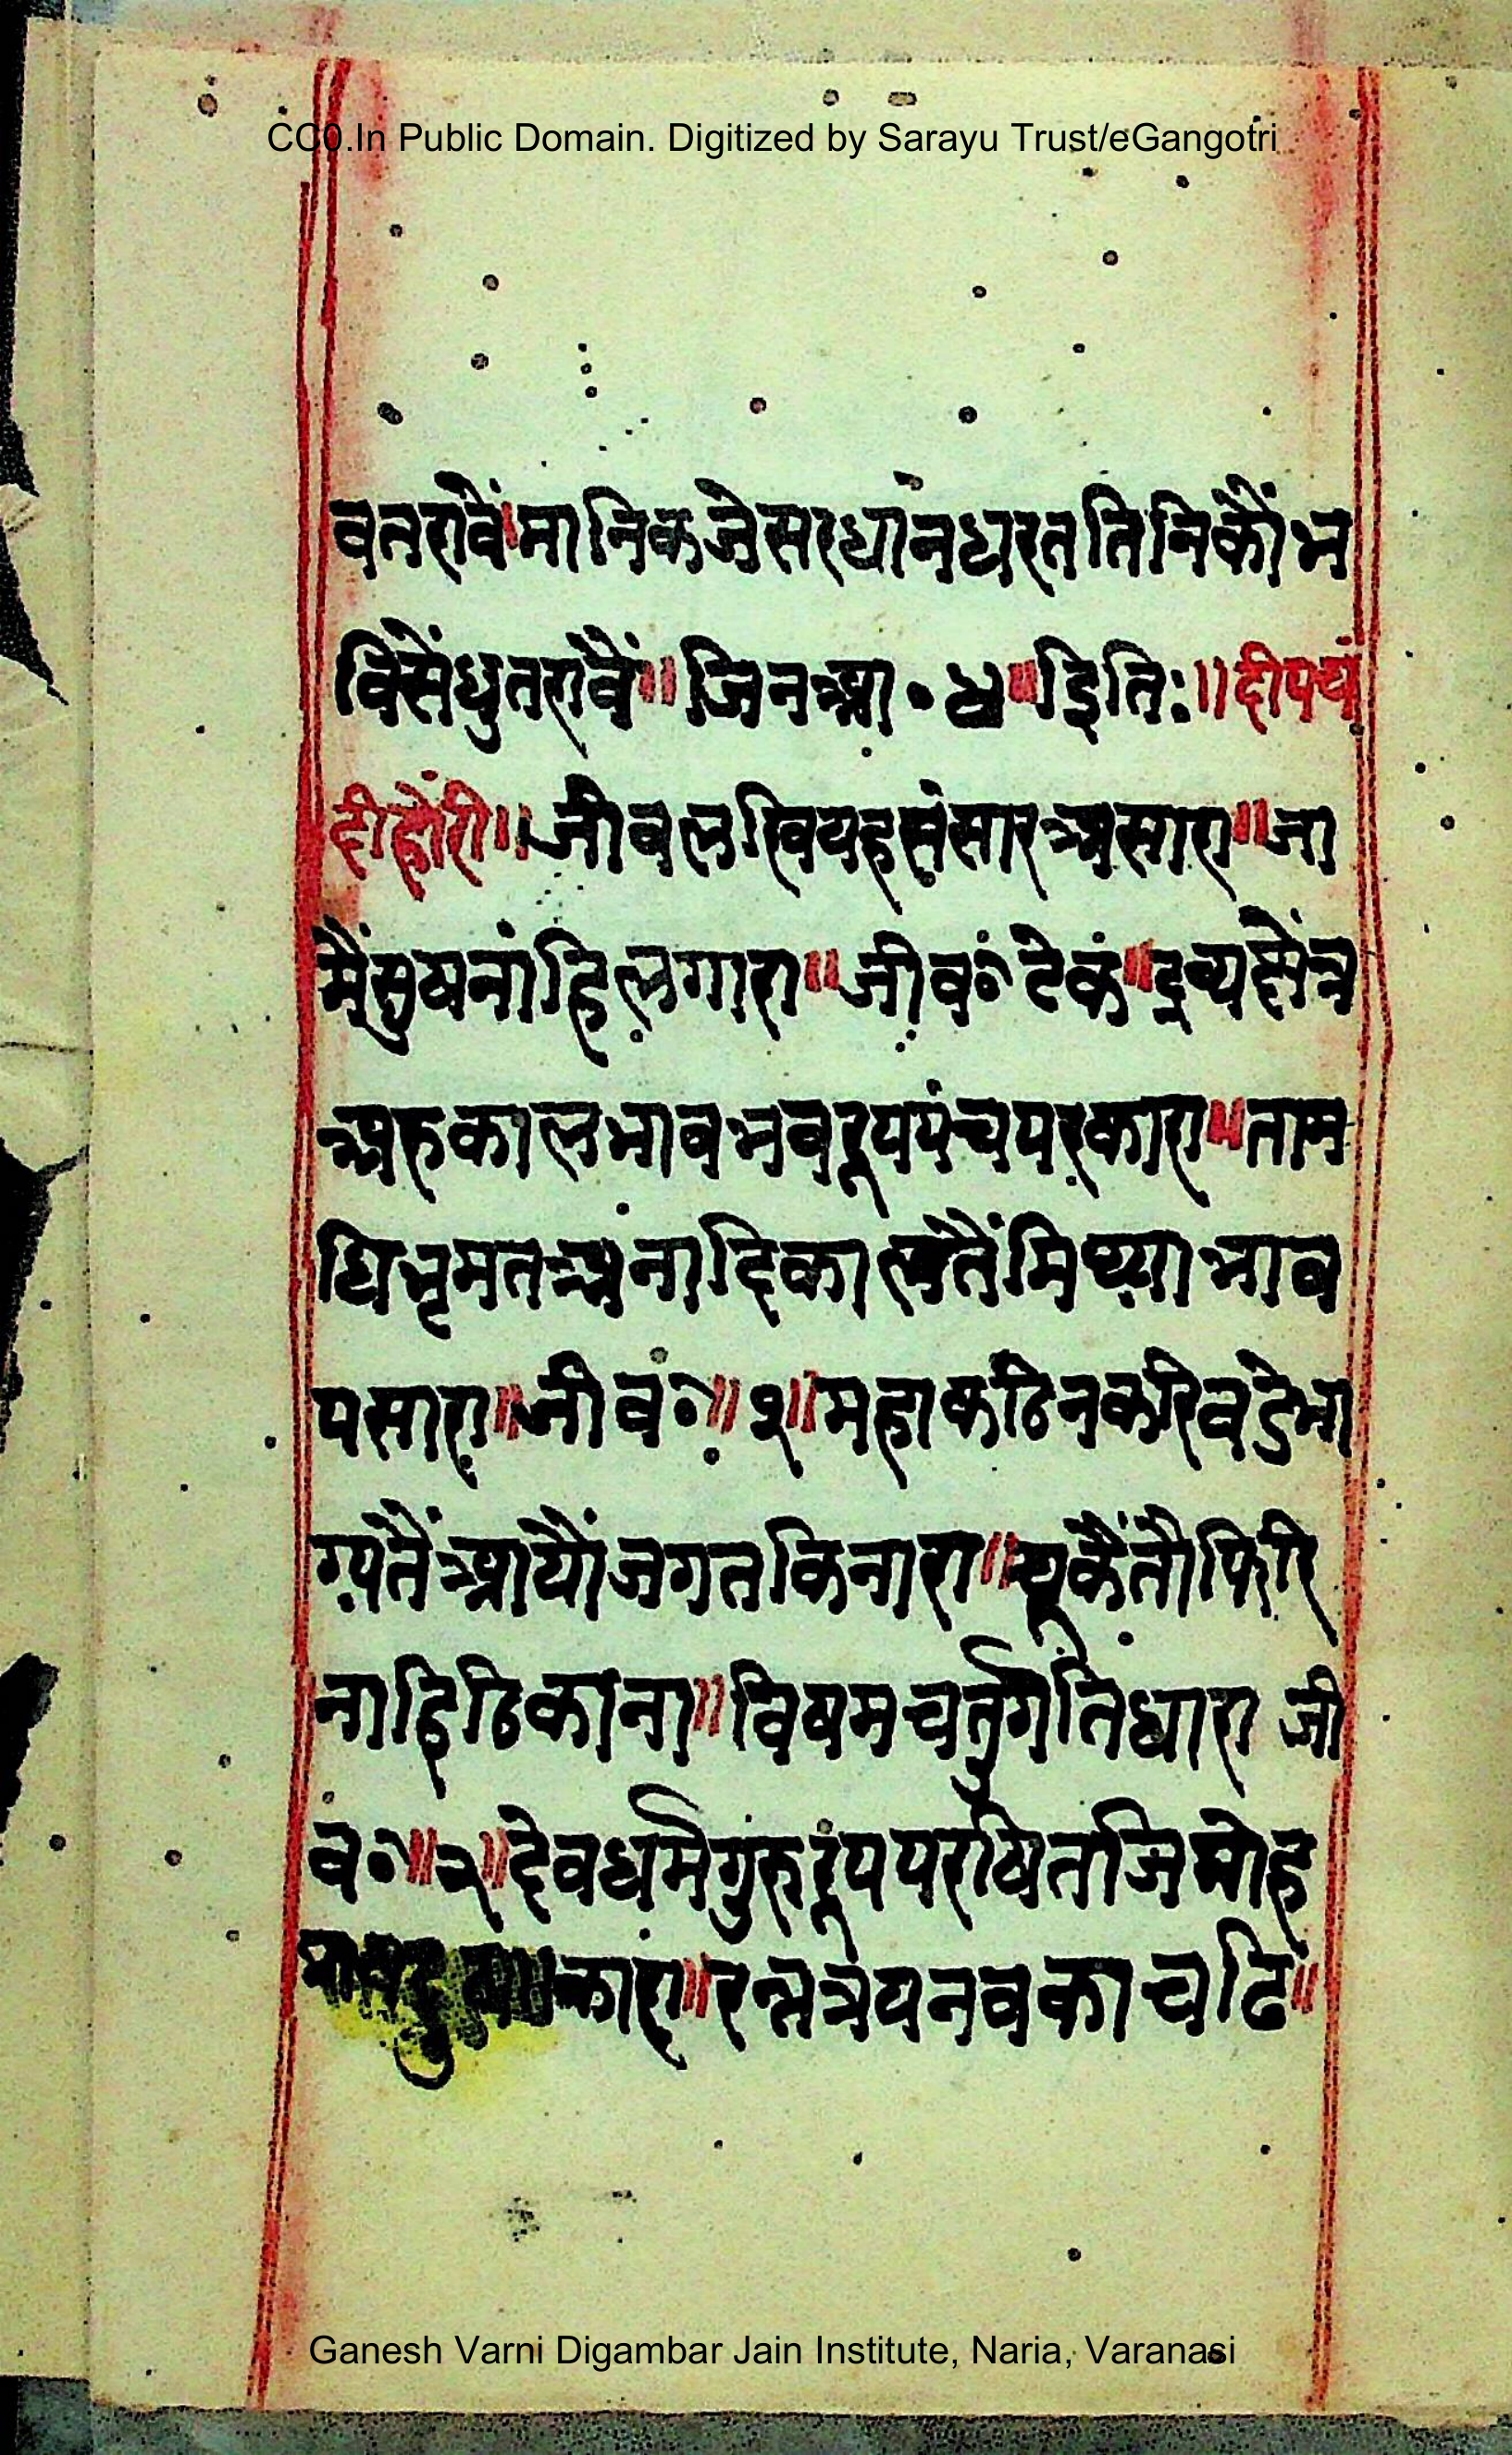 CC0.In Public Domain. Digitized by Sarayu Trust/eGangotri
वनरावैं॥मानिकजेसरधानधरततिनिकौंभ
विसेंधुतरावैं॥जिनआ०४॥इतिः॥दीपचं
दीहोरी॥जीवलखियहसंसारअसारा॥जा
मैंसुषनांहिलगारा॥जीव०टेक॥द्रव्यक्षेत्र
अरुकालभावभवरूपपंचपरकारा॥ताम
धिभ्रमतअनादिकालतैंमिथ्याभाव
पसारा॥जीव०॥१॥महाकठिनकरिबडेभा
ग्यतैंआयौंजगतकिनारा॥चूकैंतौफिरि
नाहिठिकाना॥विषमचर्तुगतिधारा जी
व०॥२॥देवधर्मगुरुरूपपरषितजिमोह
कारा॥रत्नत्रयनवकाचढि॥
Ganesh Varni Digambar Jain Institute, Naria, Varanasi